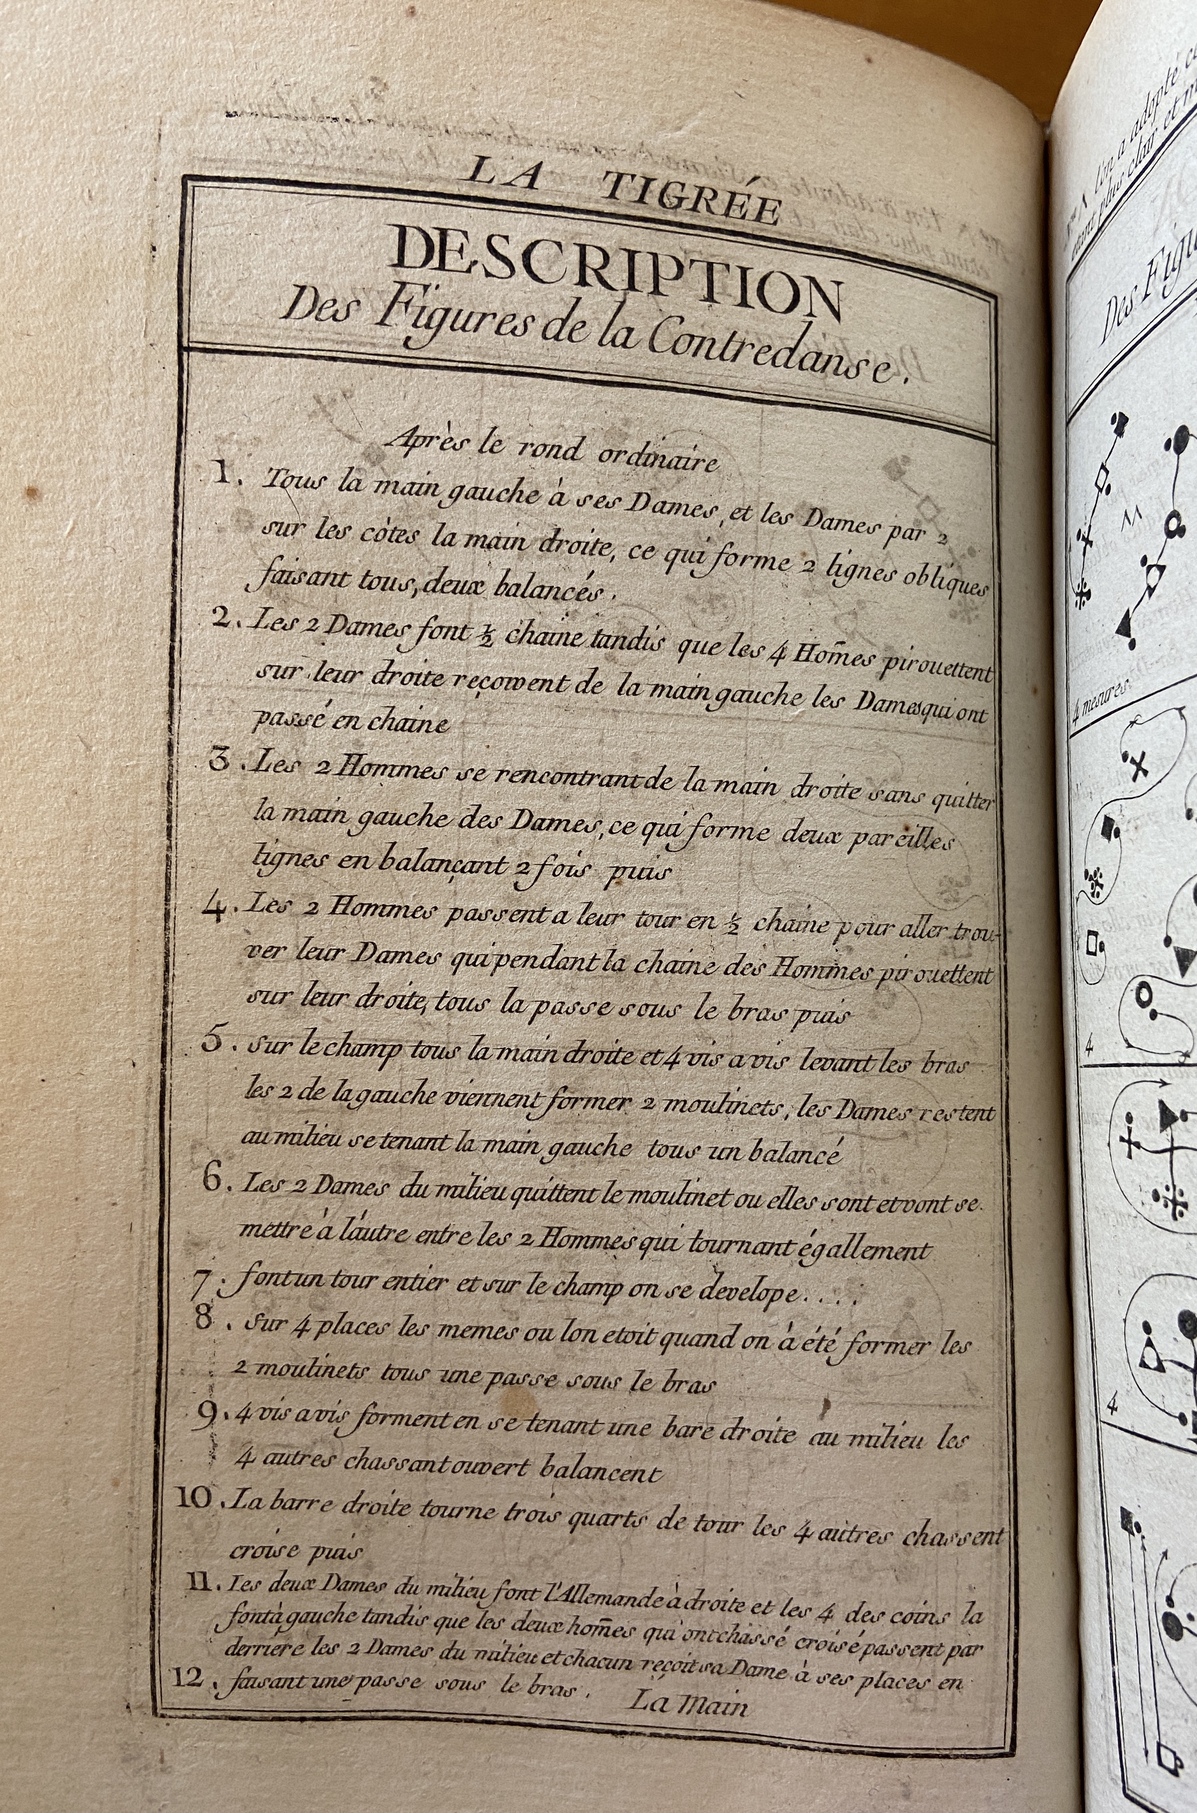 LA TIGRÉE
DESCRIPTION
Des Figures de la Contredanse.
Après le rond ordinaire
1. Tous la main gauche à ses Dames, et les Dames par 2
sur les côtes la main droite, ce qui forme 2 lignes obliques
faisant tous, deux balancés.
2. Les 2 Dames font ½ chaine tandis que les 4 Hom̃es pirouettent
sur leur droite reçowent de la main gauche les Dames qui ont
passé en chaine
3. Les 2 Hommes se rencontrant de la main droite sans quitter
la main gauche des Dames, ce qui forme deux pareilles
lignes en balançant 2 fois puis
4. Les 2 Hommes passent a leur tour en ½ chaine pour aller trou-
ver leur Dames qui pendant la chaine des Hommes pirouettent
sur leur droite, tous la passe sous le bras puis
5. sur le champ tous la main droite et 4 vis a vis levant les bras
les 2 de la gauche viennent former 2 moulinets, les Dames restent
au milieu se tenant la main gauche tous un balancé
6. Les 2 Dames du milieu quittent le moulinet ou elles sont et vont se
mettre à l'autre entre les 2 Hommes qui tournant égallement
7. font un tour entier et sur le champ on se develope....
8. Sur 4 places les memes ou lon etoit quand on à été former les
2 moulinets tous une passe sous le bras
9. 4 vis a vis forment en se tenant une bare droite au milieu les
4 autres chassant ouvert balancent
10. La barre droite tourne trois quarts de tour les 4 autres chassent
croise puis
11. Les deux Dames du milieu font l'Allemande à droite et les 4 des coins la
font à gauche tandis que les deux hom̃es qui ont chassé croisé passent par
derriere les 2 Dames du milieu et chacun reçoit sa Dame à ses places en
12. faisant une passe sous le bras. La Main
l'on a adopté
étant plus clair et
Des Figu
4 mesures.
4
4